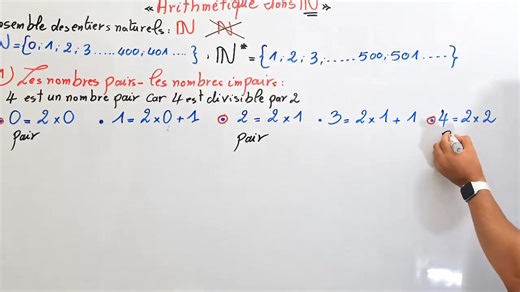 « Arithmétique dans ℕ »
semble des entiers naturels: ℕ ℕ
ℕ = {0, 1, 2, 3 ...... 400, 401 .... } , ℕ* = {1, 2, 3, ...... 500, 501 ..... }
1) Les nombres pairs - les nombres impairs:
4 est un nombre pair car 4 est divisible par 2
0 = 2 × 0 • 1 = 2 × 0 + 1 2 = 2 × 1 • 3 = 2 × 1 + 1 4 = 2 × 2
pair pair